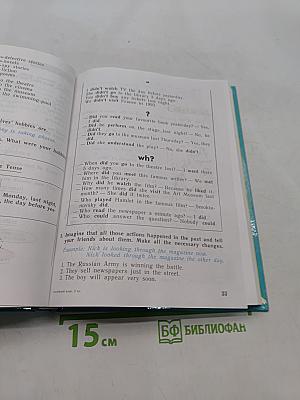 -detective stories
novels
spy stories
fiction
poems
to the theatre
to the cinema
to the museum
to the swimming pool
hobbies are.
is taking photos
What were your hobbies
Tense
Monday, last night,
the day before yes-
I didn't watch TV the day before yesterday.
She didn't go to the library 3 days ago.
We didn't visit France in 1995.
?
— Did you read your favourite book yesterday? — Yes,
I did.
— Did he perform on the stage last night? — No, he
didn't.
— Did they go to the museum last Thursday? — Yes, they
did.
— Did she understand the play? — No, she didn't.
wh?
— When did you go to the theatre last? — I went there
5 days ago.
— Where did you meet this famous writer? — We met
him in the library.
— Why did he watch the film? — Because he liked it.
— How many times did she visit the Art Museum last
month? — She did it twice.
— Who played Hamlet in the famous film? — Smokto-
novsky did.
— Who read the newspaper a minute ago? — I did.
— Who could answer the question? — Nobody could
1. Imagine that all those actions happened in the past and tell
your friends about them. Make all the necessary changes.
Example: Nick is looking through the magazine now.
Nick looked through the magazine the other day.
1. The Russian Army is winning the battle.
2. They sell newspapers just in the street.
3. The boy will appear very soon.
33
15 см
БФ БИБЛИОФАН